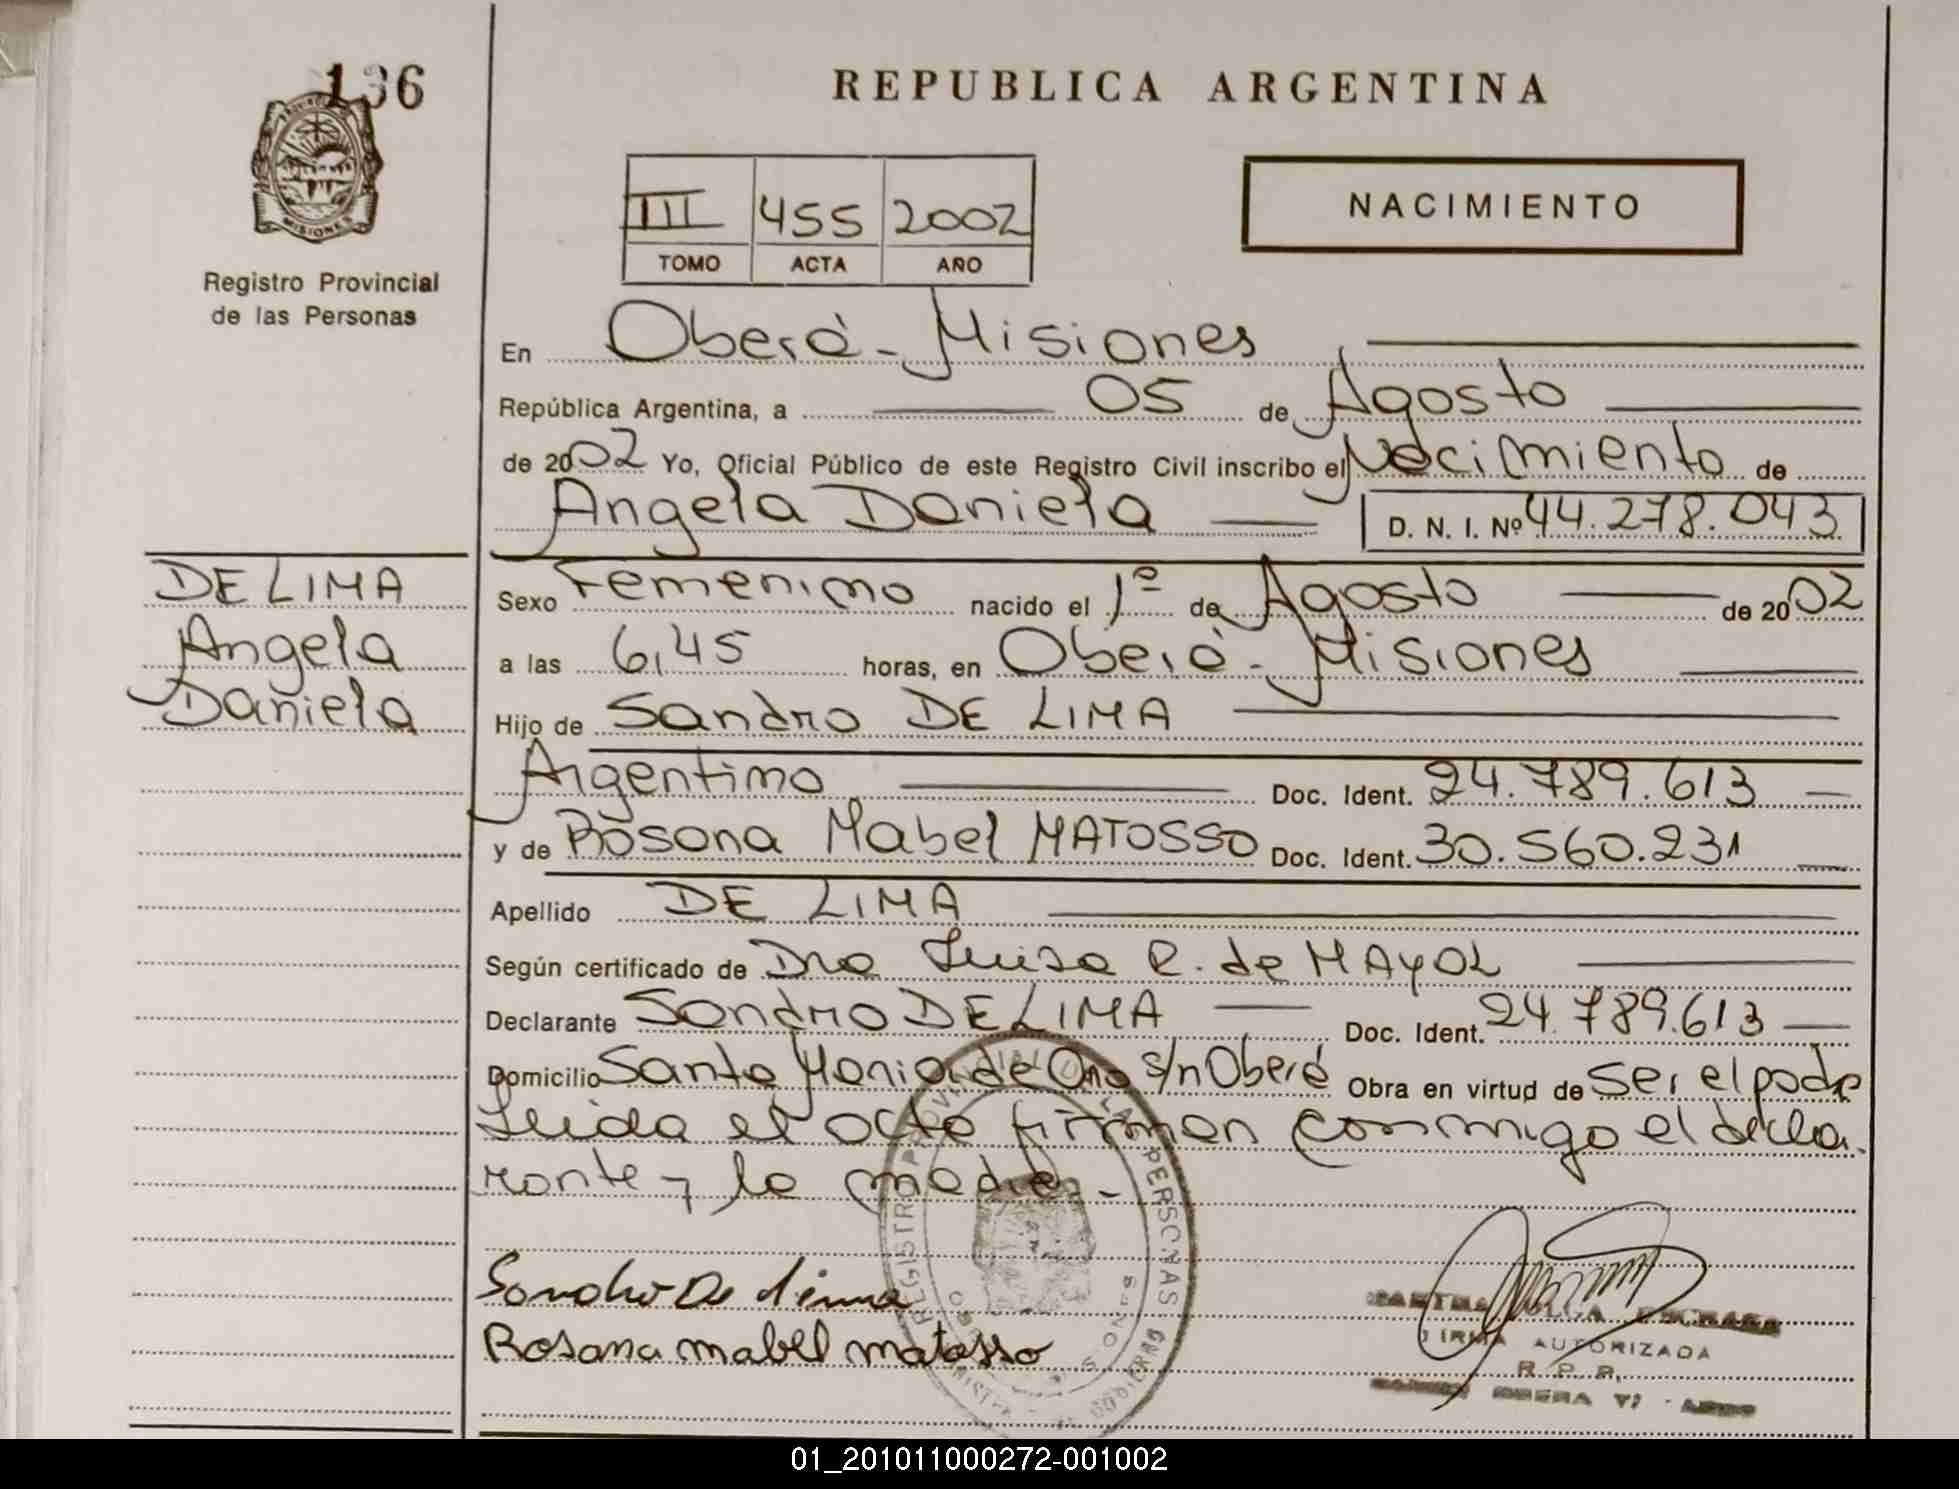 136
REPUBLICA ARGENTINA
MISIONES
Registro Provincial
de las Personas
III 455 2002
TOMO ACTA AÑO
NACIMIENTO
En Oberá - Misiones
República Argentina, a 05 de Agosto
de 2002 Yo, Oficial Público de este Registro Civil inscribo el Nacimiento de
Angela Daniela D. N. I. Nº 44.278.043
DE LIMA
Angela
Daniela
Sexo Femenino nacido el 1º de Agosto de 2002
a las 6,45 horas, en Oberá - Misiones
Hijo de Sandro DE LIMA
Argentino Doc. Ident. 24.789.613
y de Rosana Mabel MATOSSO Doc. Ident. 30.560.231
Apellido DE LIMA
Según certificado de Dra Luisa R. de MAYOL
Declarante Sandro DE LIMA Doc. Ident. 24.789.613
Domicilio Santa Maria de Oro s/n Oberá Obra en virtud de ser el padre
Leida el acta firman conmigo el decla
rante y la madre -
REGISTRO PROVINCIAL DE LAS PERSONAS
Sandro De Lima
Rosana mabel matosso
FIRMA AUTORIZADA
R. P. P.
01_201011000272-001002